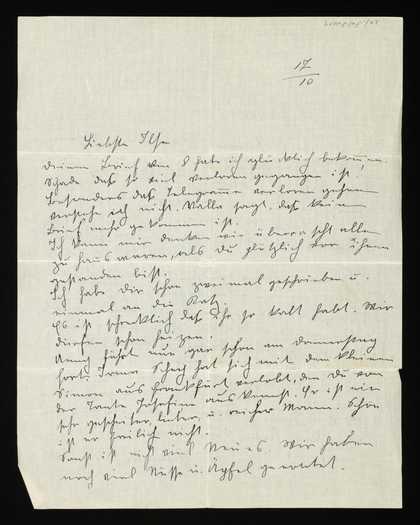 17
10
Liebste Ilse
Deinen Brief vom 8 habe ich glücklich bekommen.
Schade daß so viel verloren gegangen ist!
Besonders das Telegramm verloren gehen
verstehe ich nicht. Valle sagt, daß kein
Brief mehr gekommen ist.
Ich kann mir denken wie überrascht alle
zu haus waren, als du plötzlich vor ihnen
gestanden bist.
Ich habe dir schon zweimal geschrieben u.
einmal an die Katz.
Es ist schrecklich daß Ihr so kalt habt. Wir
dürfen schon heizen.
Anny fährt nun gar schon am Donnerstag
fort. Irma hat sich mit dem kleinen
Simon aus Frankfurt verlobt, den Du von
der Tante Josefine aus kennst. Er ist ein
sehr gescheiter, lieber, u. reicher Mann. Schön
ist er freilich nicht.
Sonst ist nicht viel Neues. Wir haben
noch viel Nüsse u. Äpfel geerntet.